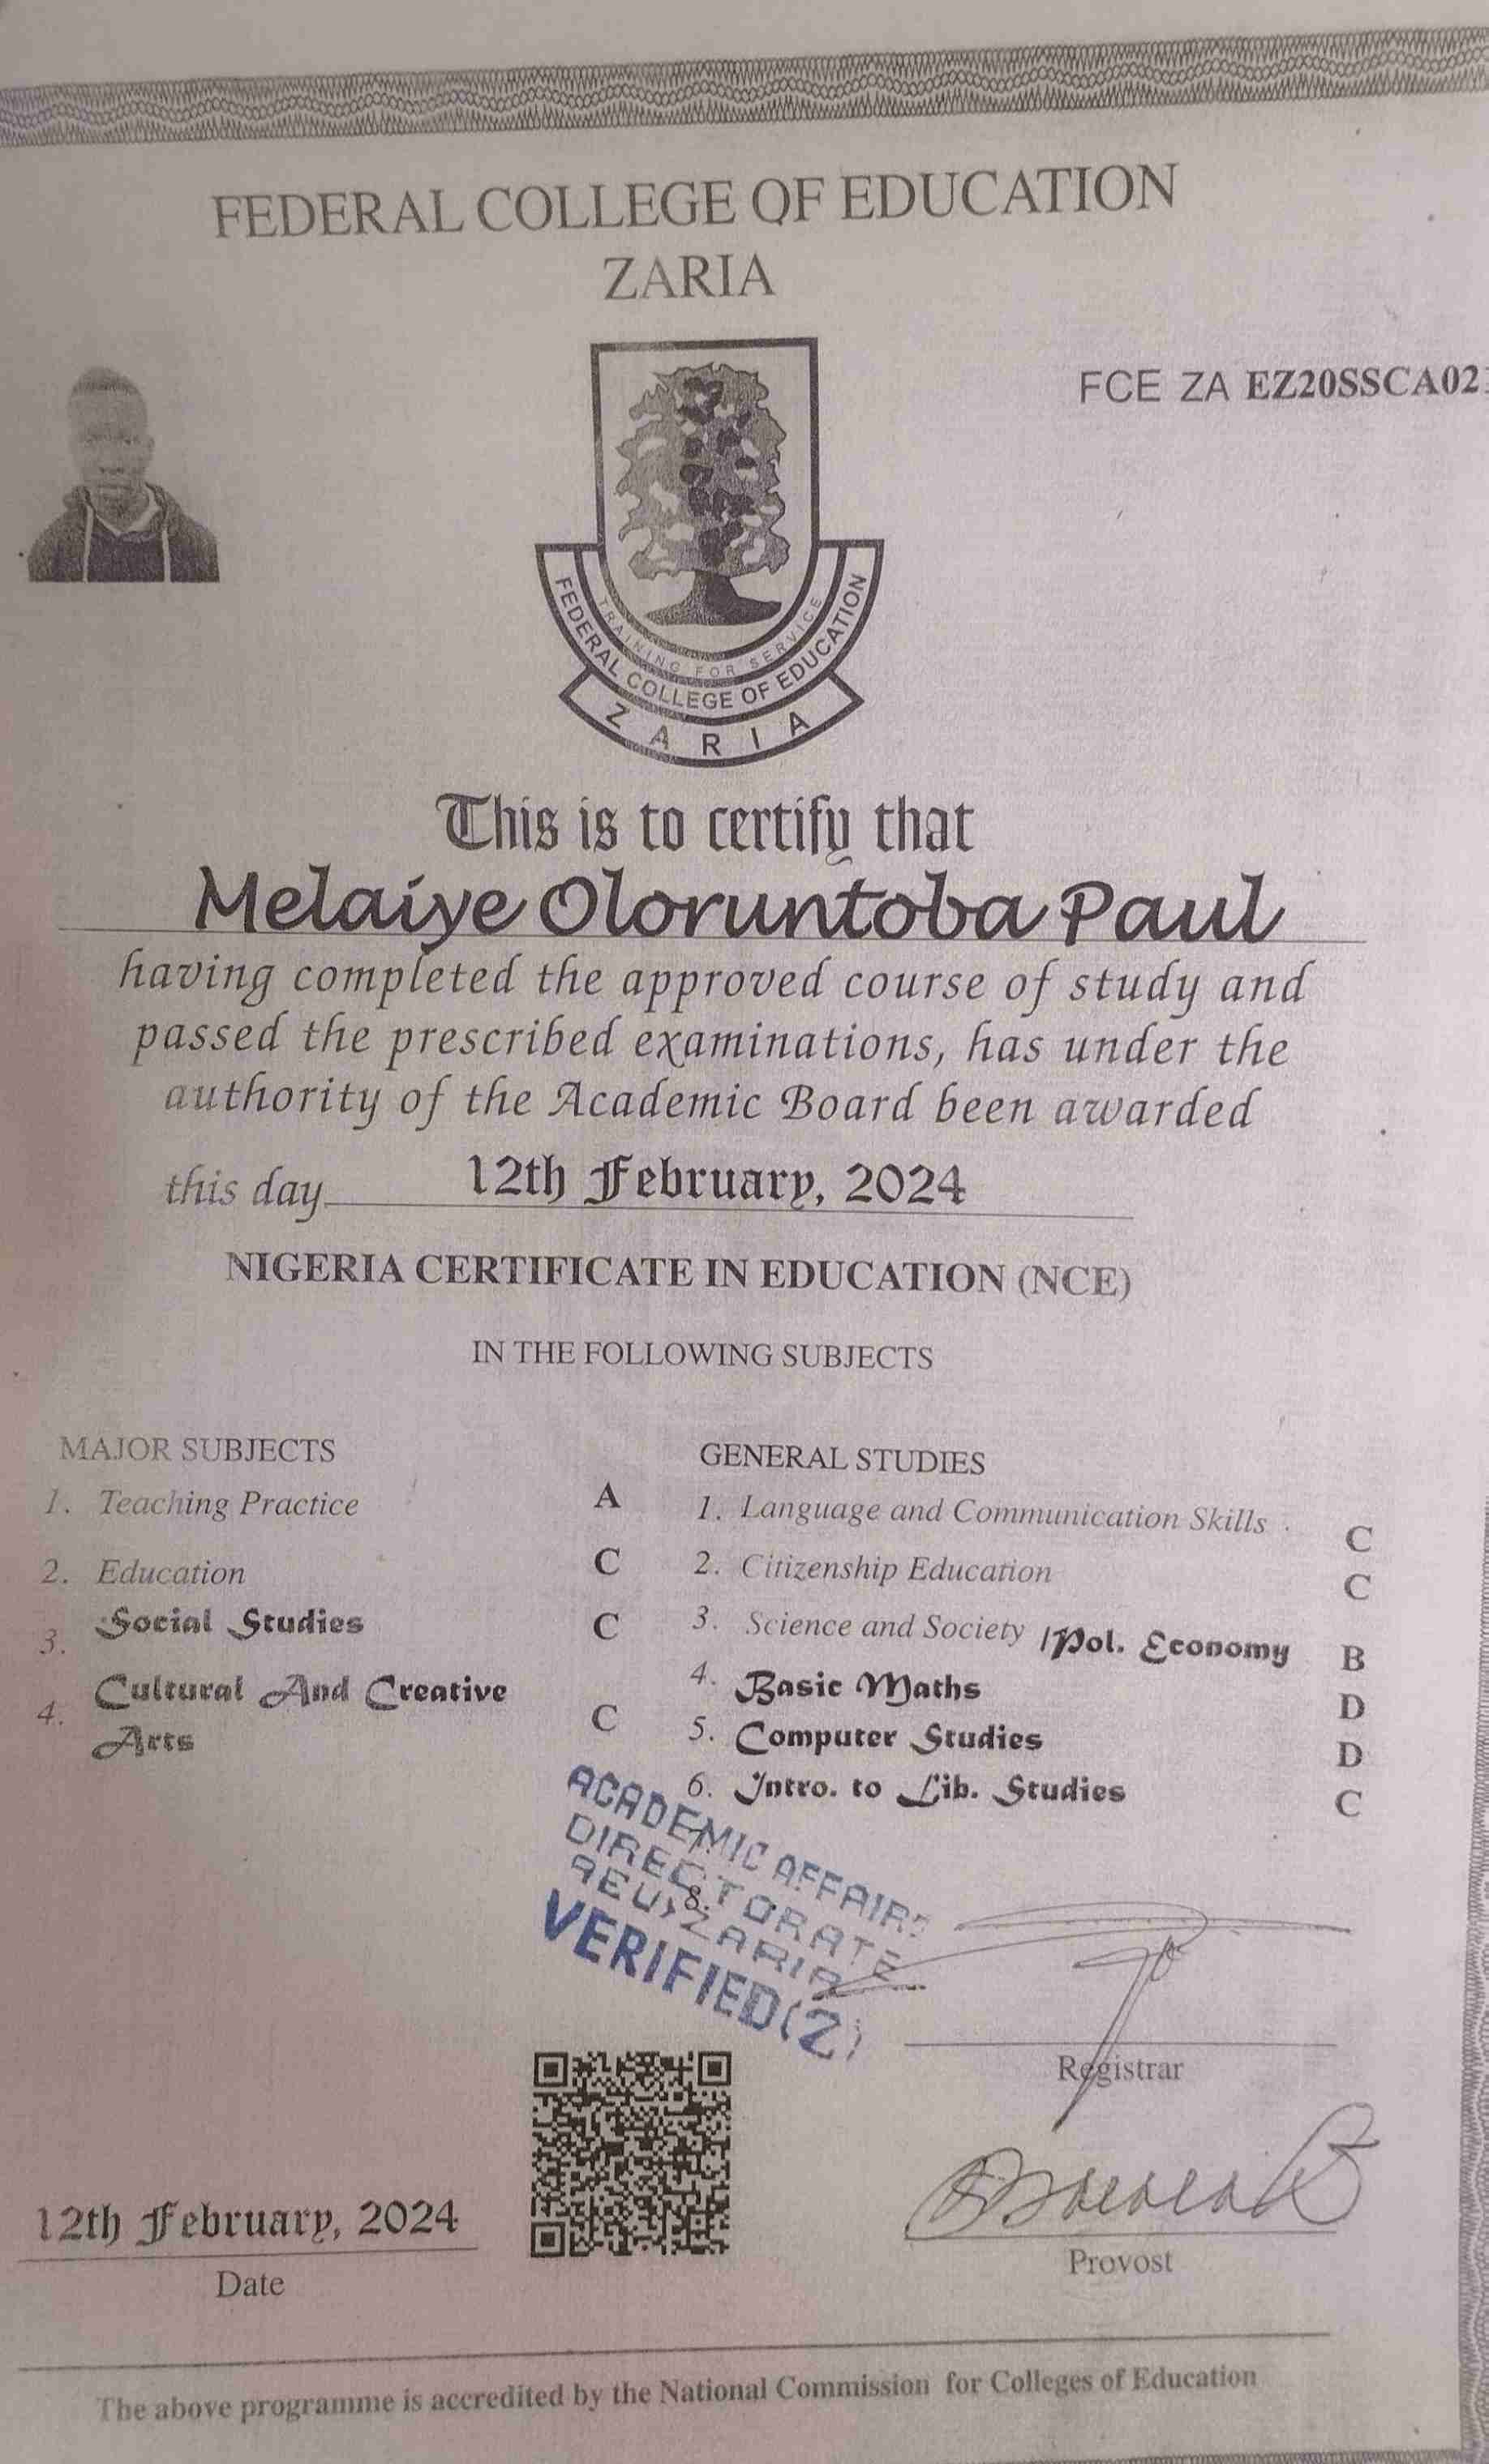 FEDERAL COLLEGE OF EDUCATION
ZARIA
FCE ZA EZ20SSCA02
TRAINING FOR SERVICE
FEDERAL COLLEGE OF EDUCATION
ZARIA
This is to certify that
Melaiye Oloruntoba Paul
having completed the approved course of study and
passed the prescribed examinations, has under the
authority of the Academic Board been awarded
this day 12th February, 2024
NIGERIA CERTIFICATE IN EDUCATION (NCE)
IN THE FOLLOWING SUBJECTS
MAJOR SUBJECTS
1. Teaching Practice A
2. Education C
3. Social Studies C
4. Cultural And Creative
Arts C
GENERAL STUDIES
1. Language and Communication Skills C
2. Citizenship Education C
3. Science and Society /Pol. Economy B
4. Basic Maths D
5. Computer Studies D
6. Intro. to Lib. Studies C
7.
8.
ACADEMIC AFFAIRS
DIRECTORATE
ZARIA
VERIFIED (2)
Registrar
12th February, 2024
Date
Provost
The above programme is accredited by the National Commission for Colleges of Education